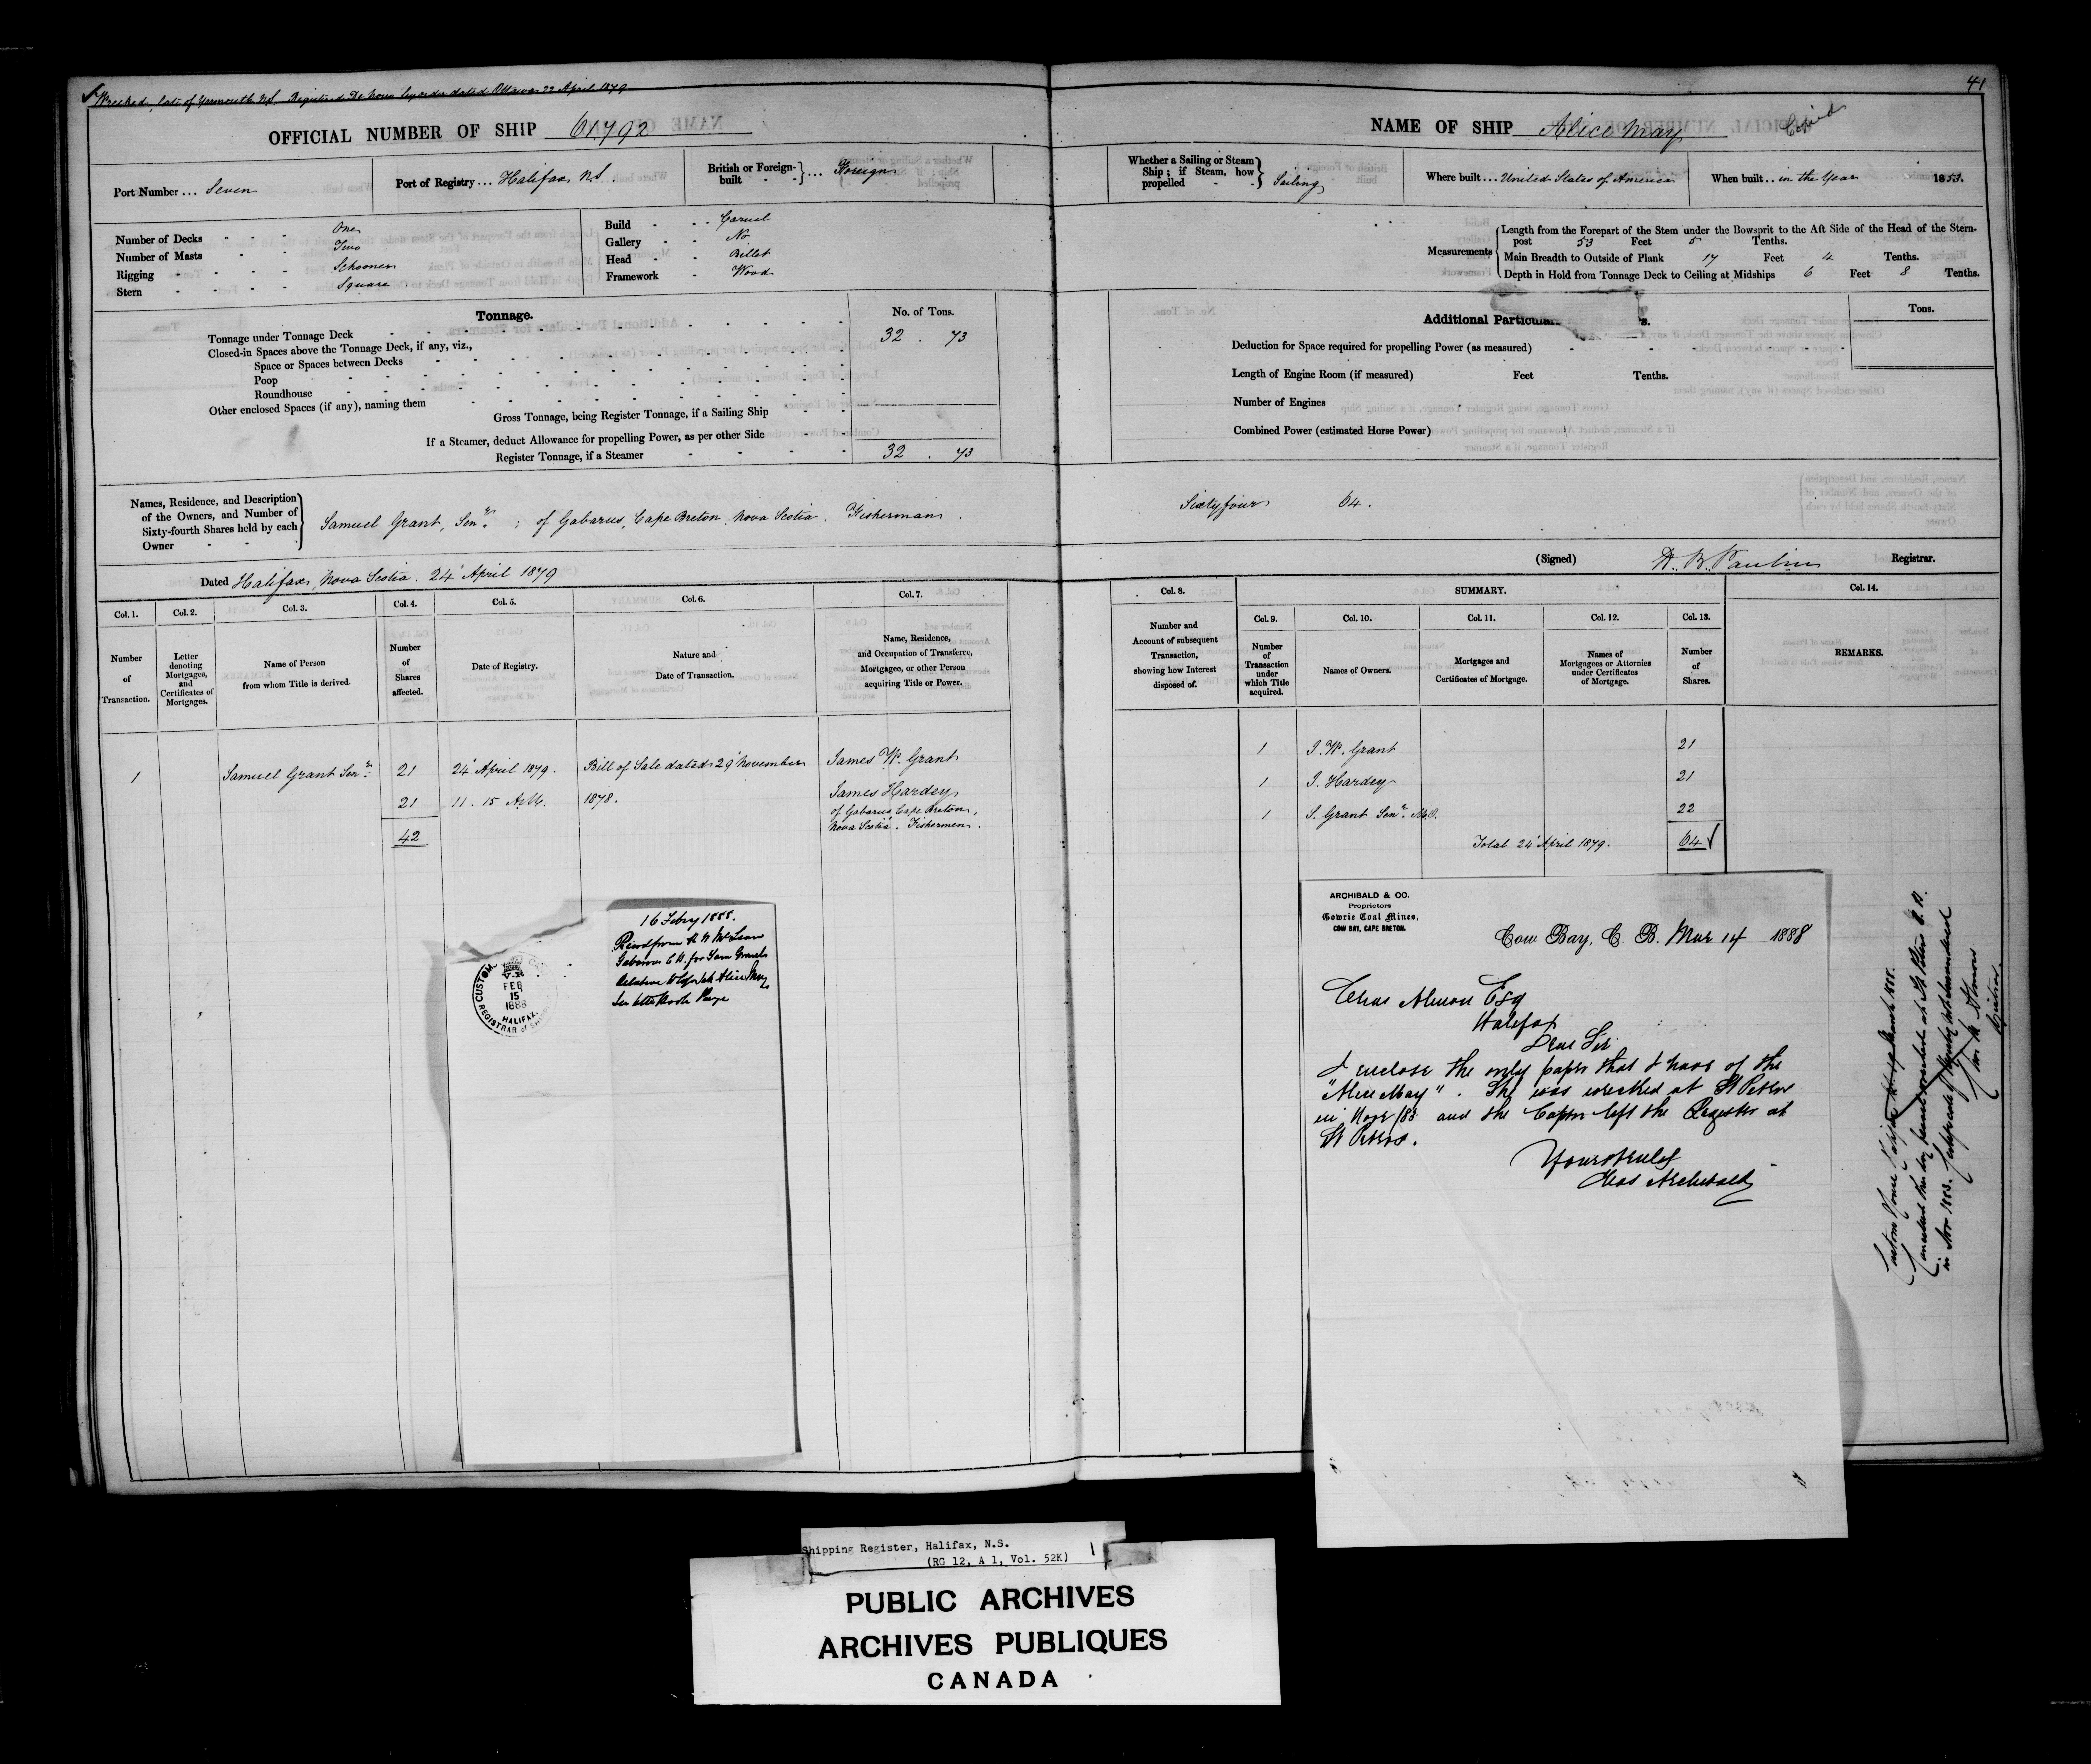 Wrecked, late of Yarmouth N.S. Registered De Novo by order dated Ottawa 22 April 1879
41
OFFICIAL NUMBER OF SHIP 61792
NAME OF SHIP Alice May
Closed
Port Number ... Seven
Port of Registry ... Halifax N.S.
British or Foreign-built ... Foreign
Whether a Sailing or Steam Ship; if Steam, how propelled - - Sailing
Where built ... United States of America
When built .. in the Year 1853.
Number of Decks - - - One
Number of Masts - - Two
Rigging - - - - Schooner
Stern - - - - Square
Build - - - Carvel
Gallery - - No
Head - - Billet
Framework - Wood
Measurements
Length from the Forepart of the Stem under the Bowsprit to the Aft Side of the Head of the Stern-
post 53 Feet 5 Tenths.
Main Breadth to Outside of Plank 17 Feet 4 Tenths.
Depth in Hold from Tonnage Deck to Ceiling at Midships 6 Feet 8 Tenths.
Tonnage.
No. of Tons.
Tonnage under Tonnage Deck 32 . 73
Closed-in Spaces above the Tonnage Deck, if any, viz.,
Space or Spaces between Decks
Poop
Roundhouse
Other enclosed Spaces (if any), naming them
Gross Tonnage, being Register Tonnage, if a Sailing Ship
If a Steamer, deduct Allowance for propelling Power, as per other Side
Register Tonnage, if a Steamer 32 . 73
Additional Particular s.
Tons.
Deduction for Space required for propelling Power (as measured)
Length of Engine Room (if measured) Feet Tenths.
Number of Engines
Combined Power (estimated Horse Power)
Names, Residence, and Description
of the Owners, and Number of
Sixty-fourth Shares held by each
Owner
Samuel Grant, Senr. ; of Gabarus, Cape Breton, Nova Scotia. Fisherman. Sixtyfour 64.
Dated Halifax, Nova Scotia. 24 April 1879
(Signed) Registrar.
Col. 1. Col. 2. Col. 3. Col. 4. Col. 5. Col. 6. Col. 7.
Number of Transaction.
Letter denoting Mortgages, and Certificates of Mortgages.
Name of Person from whom Title is derived.
Number of Shares affected.
Date of Registry.
Nature and Date of Transaction.
Name, Residence, and Occupation of Transferee, Mortgagee, or other Person acquiring Title or Power.
1 Samuel Grant Senr. 21 24 April 1879. Bill of Sale dated 29 November James W. Grant
21 11. 15 A.M. 1878. James Hardey
of Gabarus, Cape Breton,
Nova Scotia. Fishermen.
42
Col. 8. SUMMARY. Col. 14.
Col. 9. Col. 10. Col. 11. Col. 12. Col. 13.
Number and Account of subsequent Transaction, showing how Interest disposed of.
Number of Transaction under which Title acquired.
Names of Owners.
Mortgages and Certificates of Mortgage.
Names of Mortgagees or Attornies under Certificates of Mortgage.
Number of Shares.
REMARKS.
1 J. W. Grant 21
1 J. Hardey 21
1 S. Grant Senr. M.O. 22
Total 24 April 1879. 64
16 Feby 1888.
from
Gabarus C B. for Sam Grant
Relative to Alice May
CUSTOM
V.R
FEB
15
1888
HALIFAX.
REGISTRAR of
ARCHIBALD & CO.
Proprietors
Gowrie Coal Mines,
COW BAY, CAPE BRETON.
Cow Bay, C. B. Mar 14 1888
Chas Almon Esq
Halifax
Dear Sir
I enclose the only paper that I have of the
"Alice May". She was wrecked at St Peters
in Novr /83 and the Captn left the Register at
St Peters.
Yours truly
Chas Archibald
Custom House Halifax March 1888.
wrecked at St Peters C. B.
in Nov 1883. Certificate of Registry not surrendered
Registrar
Shipping Register, Halifax, N.S.
(RG 12, A 1, Vol. 52K)
PUBLIC ARCHIVES
ARCHIVES PUBLIQUES
CANADA